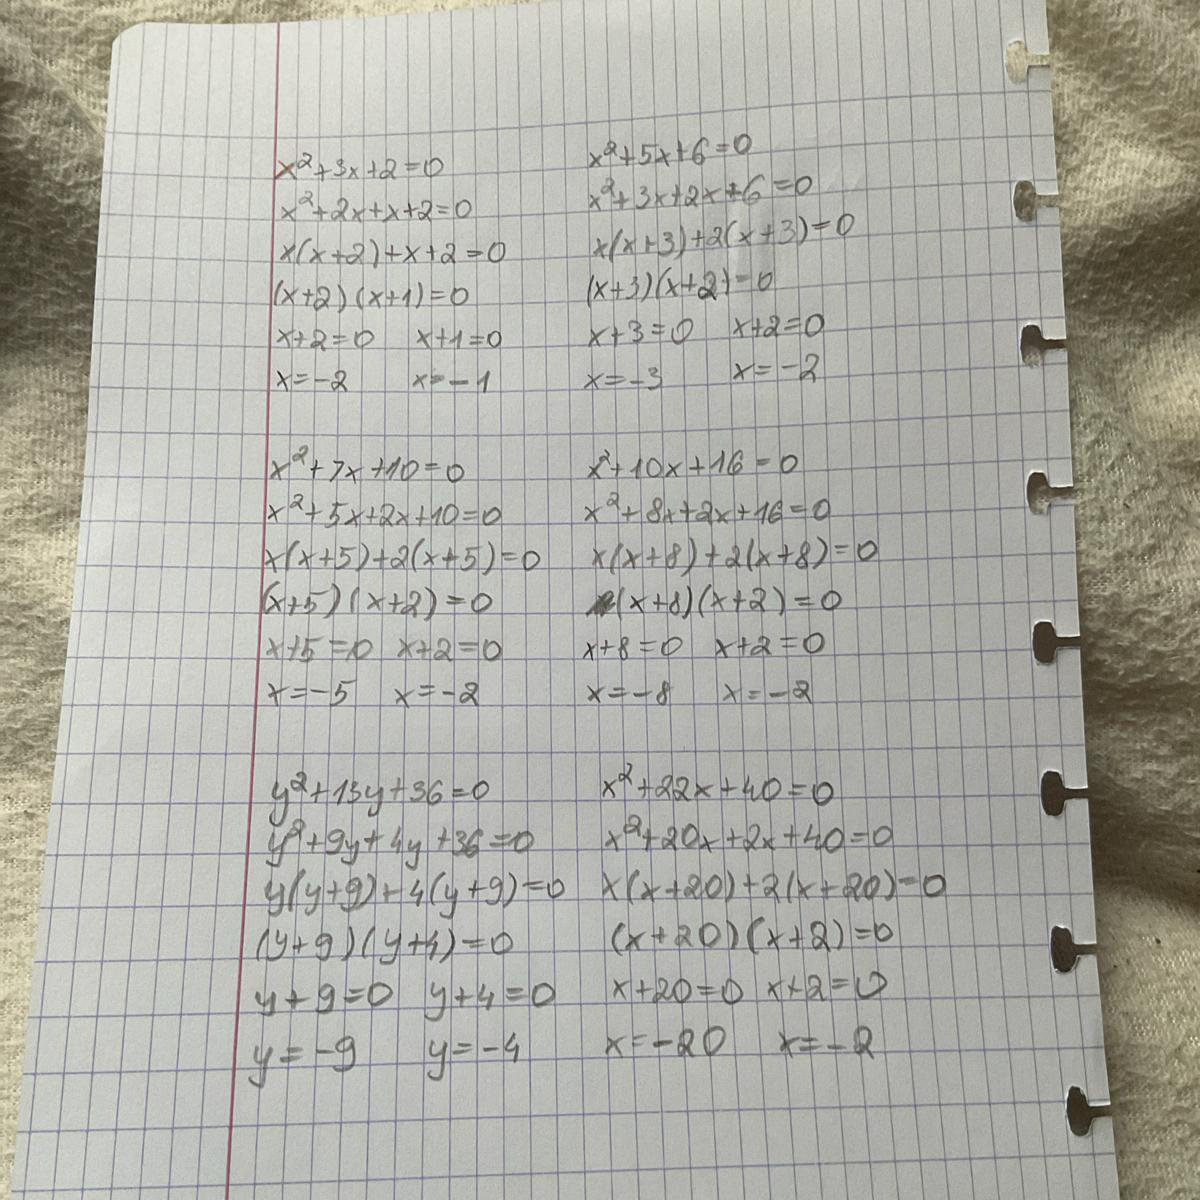 x²+3x+2=0
x²+2x+x+2=0
x(x+2)+x+2=0
(x+2)(x+1)=0
x+2=0 x+1=0
x=-2 x=-1
x²+5x+6=0
x²+3x+2x+6=0
x(x+3)+2(x+3)=0
(x+3)(x+2)=0
x+3=0 x+2=0
x=-3 x=-2
x²+7x+10=0
x²+5x+2x+10=0
x(x+5)+2(x+5)=0
(x+5)(x+2)=0
x+5=0 x+2=0
x=-5 x=-2
x²+10x+16=0
x²+8x+2x+16=0
x(x+8)+2(x+8)=0
(x+8)(x+2)=0
x+8=0 x+2=0
x=-8 x=-2
y²+13y+36=0
y²+9y+4y+36=0
y(y+9)+4(y+9)=0
(y+9)(y+4)=0
y+9=0 y+4=0
y=-9 y=-4
x²+22x+40=0
x²+20x+2x+40=0
x(x+20)+2(x+20)=0
(x+20)(x+2)=0
x+20=0 x+2=0
x=-20 x=-2